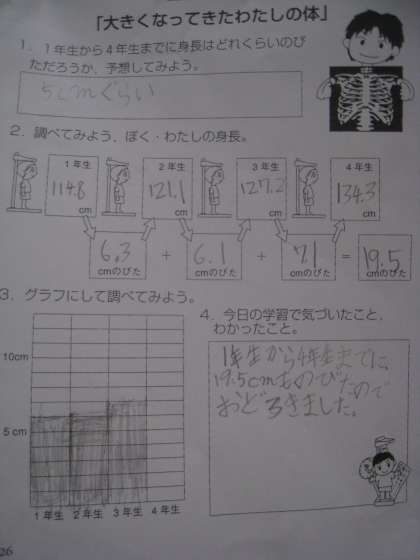 「大きくなってきたわたしの体」
1. 1年生から4年生までに身長はどれくらいのび
ただろうか、予想してみよう。
5cmぐらい
2. 調べてみよう、ぼく・わたしの身長。
1年生 2年生 3年生 4年生
114.8 121.1 127.2 134.3
cm cm cm cm
6.3 + 6.1 + 7.1 = 19.5
cmのびた cmのびた cmのびた cmのびた
3. グラフにして調べてみよう。
10cm
5cm
1年生 2年生 3年生 4年生
4. 今日の学習で気づいたこと、
わかったこと。
1年生から4年生までに、
19.5cmものびたので
おどろきました。
26